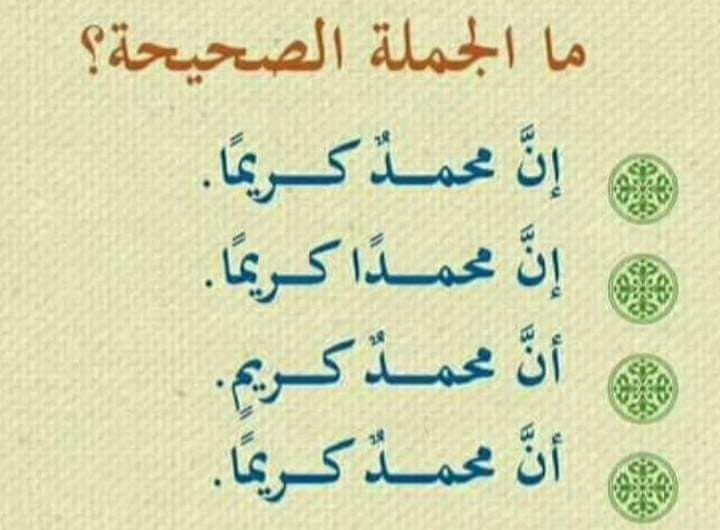 ما الجملة الصحيحة؟
إنَّ محمـدٌ كـريمًا.
إنَّ محمـدًا كـريمًا.
أنَّ محمـدٌ كـريمٍ.
أنَّ محمـدٌ كـريمًا.